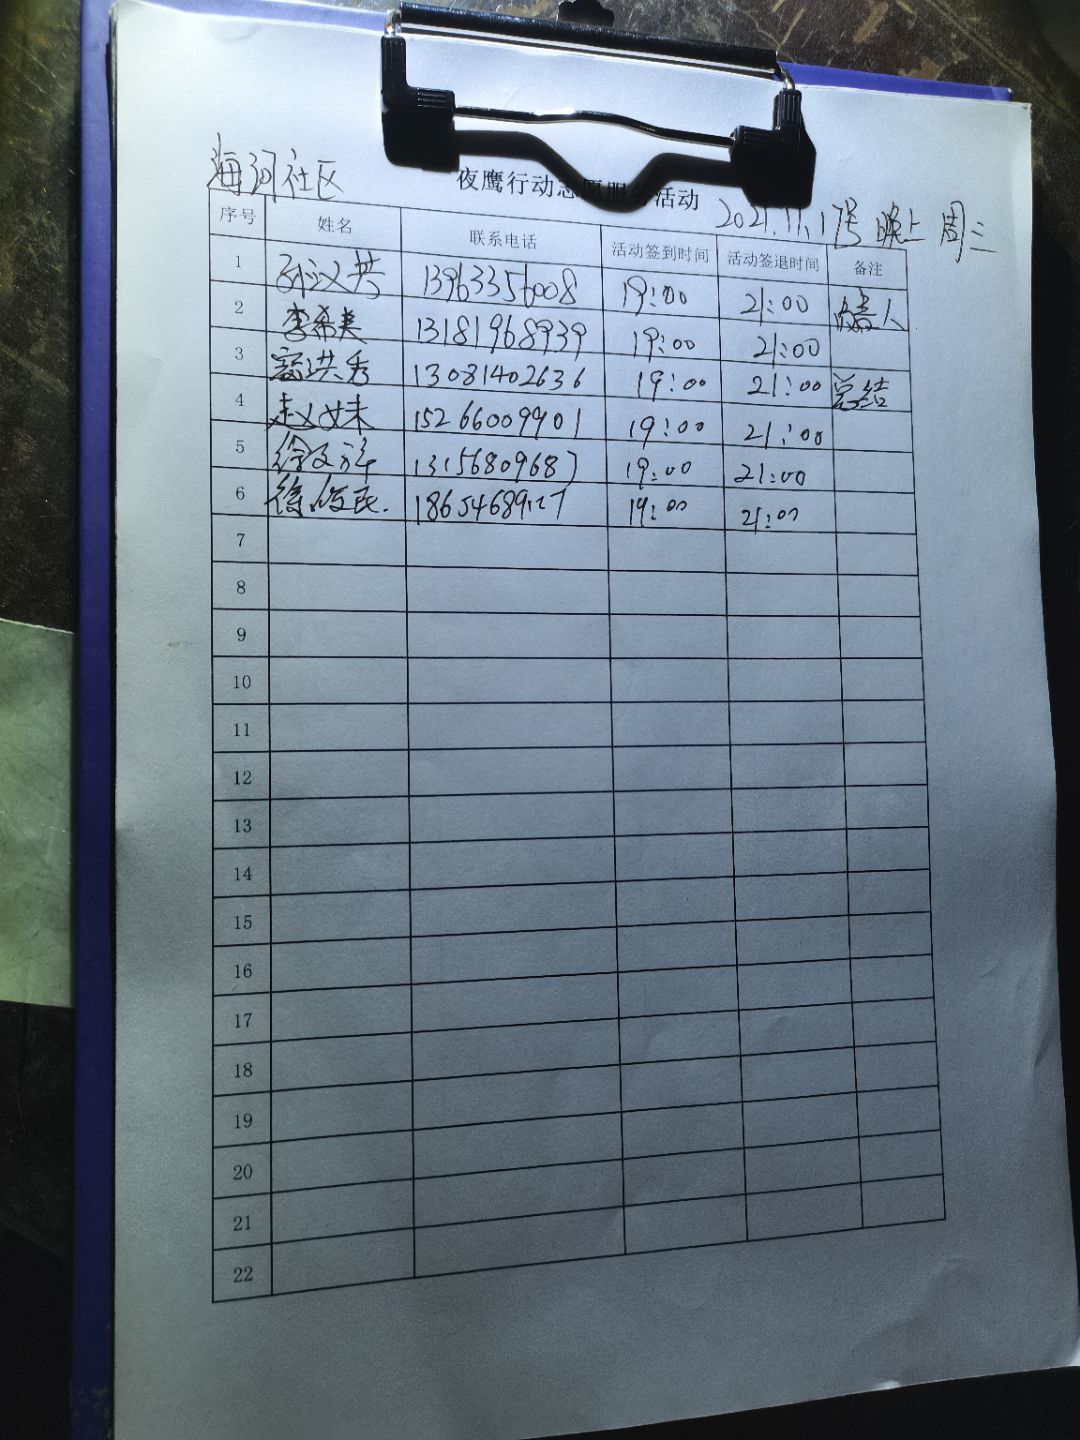 海河社区
夜鹰行动志愿服务活动
2021.11.17号 晚上 周三
序号 姓名 联系电话 活动签到时间 活动签退时间 备注
1 13963356008 19:00 21:00
2 李希美 13181968939 19:00 21:00
3 洪秀 13081402636 19:00 21:00 总结
4 赵 妹 15266009901 19:00 21:00
5 徐 13156809687 19:00 21:00
6 民 19:00 21:00
7
8
9
10
11
12
13
14
15
16
17
18
19
20
21
22